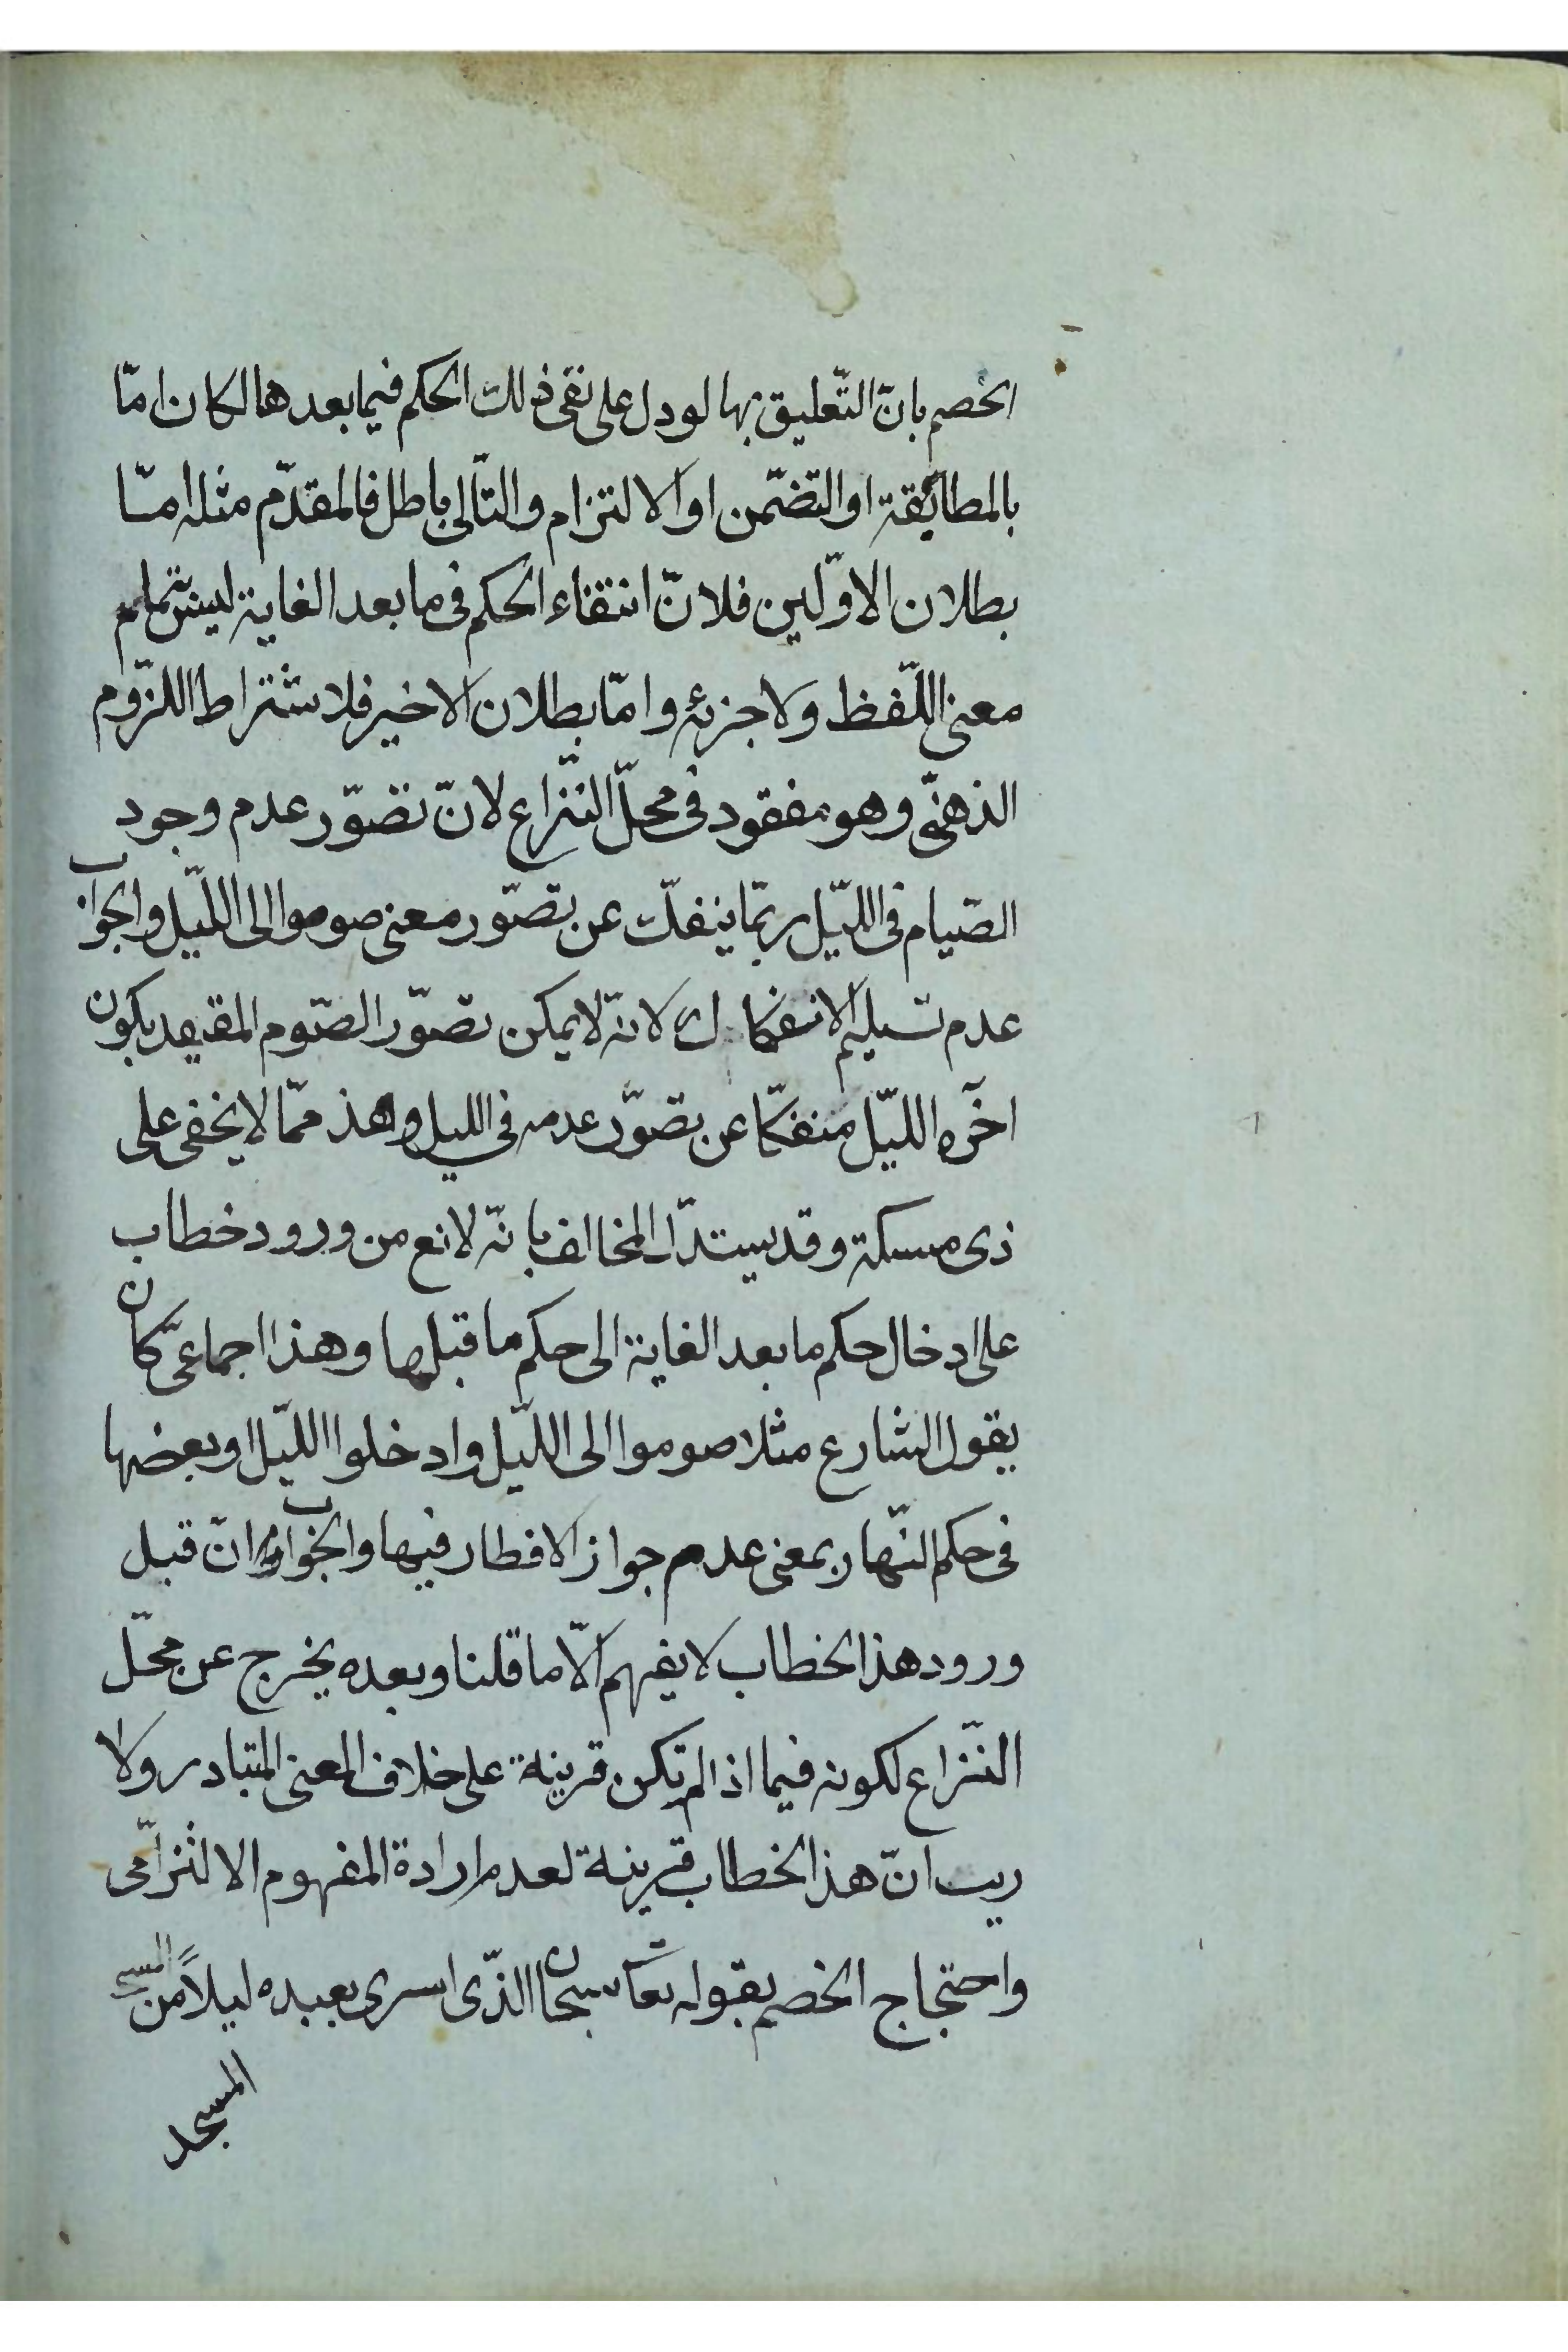 الخصم بانّ التّعليق بها لو دل على نفى ذلك الحكم فيما بعدها لكان امّا
بالمطابقة او التضمّن او الالتزام والتّالى باطل فالمقدّم مثله امّا
بطلان الاوّلين فلانّ انتفاء الحكم فى ما بعد الغاية ليس تمام
معنى اللّفظ ولا جزئه وامّا بطلان الاخير فلاشتراط اللزّوم
الذهنّى وهو مفقود فى محلّ النّزاع لانّ تصّور عدم وجود
الصّيام فى اللّيل ربّما ينفكّ عن تصّور معنى صوموا الى اللّيل والجواب
عدم تسليم الانفكاك لانّه لا يمكن تصوّر الصّوم المقيد بكون
اخره اللّيل منفكّا عن تصوّر عدمه في الليل وهذ ممّا لا يخفى على
ذى مسكة وقد يستدّل المخالف بانّه لا نع من ورود خطاب
على ادخال حكم ما بعد الغاية الى حكم ما قبلها وهذا اجماعىّ كان
يقول الشارع مثلا صوموا الى اللّيل وادخلوا اللّيل او بعضها
فى حكم النّهار بمعنى عدم جواز الافطار فيها والجواب انّ قبل
ورود هذ الخطاب لا يفهم الّا ما قلنا وبعده يخرج عن محّل
النّزاع لكونه فيما اذا لم تكن قرينة على خلاف المعنى المتبادر ولا
ريب انّ هذ الخطاب قرينة لعدم ارادة المفهوم الالتزامّى
واحتجاج الخصم بقوله تعا سبحان الذّى اسرى بعبده ليلاً من المسجد
المسجد